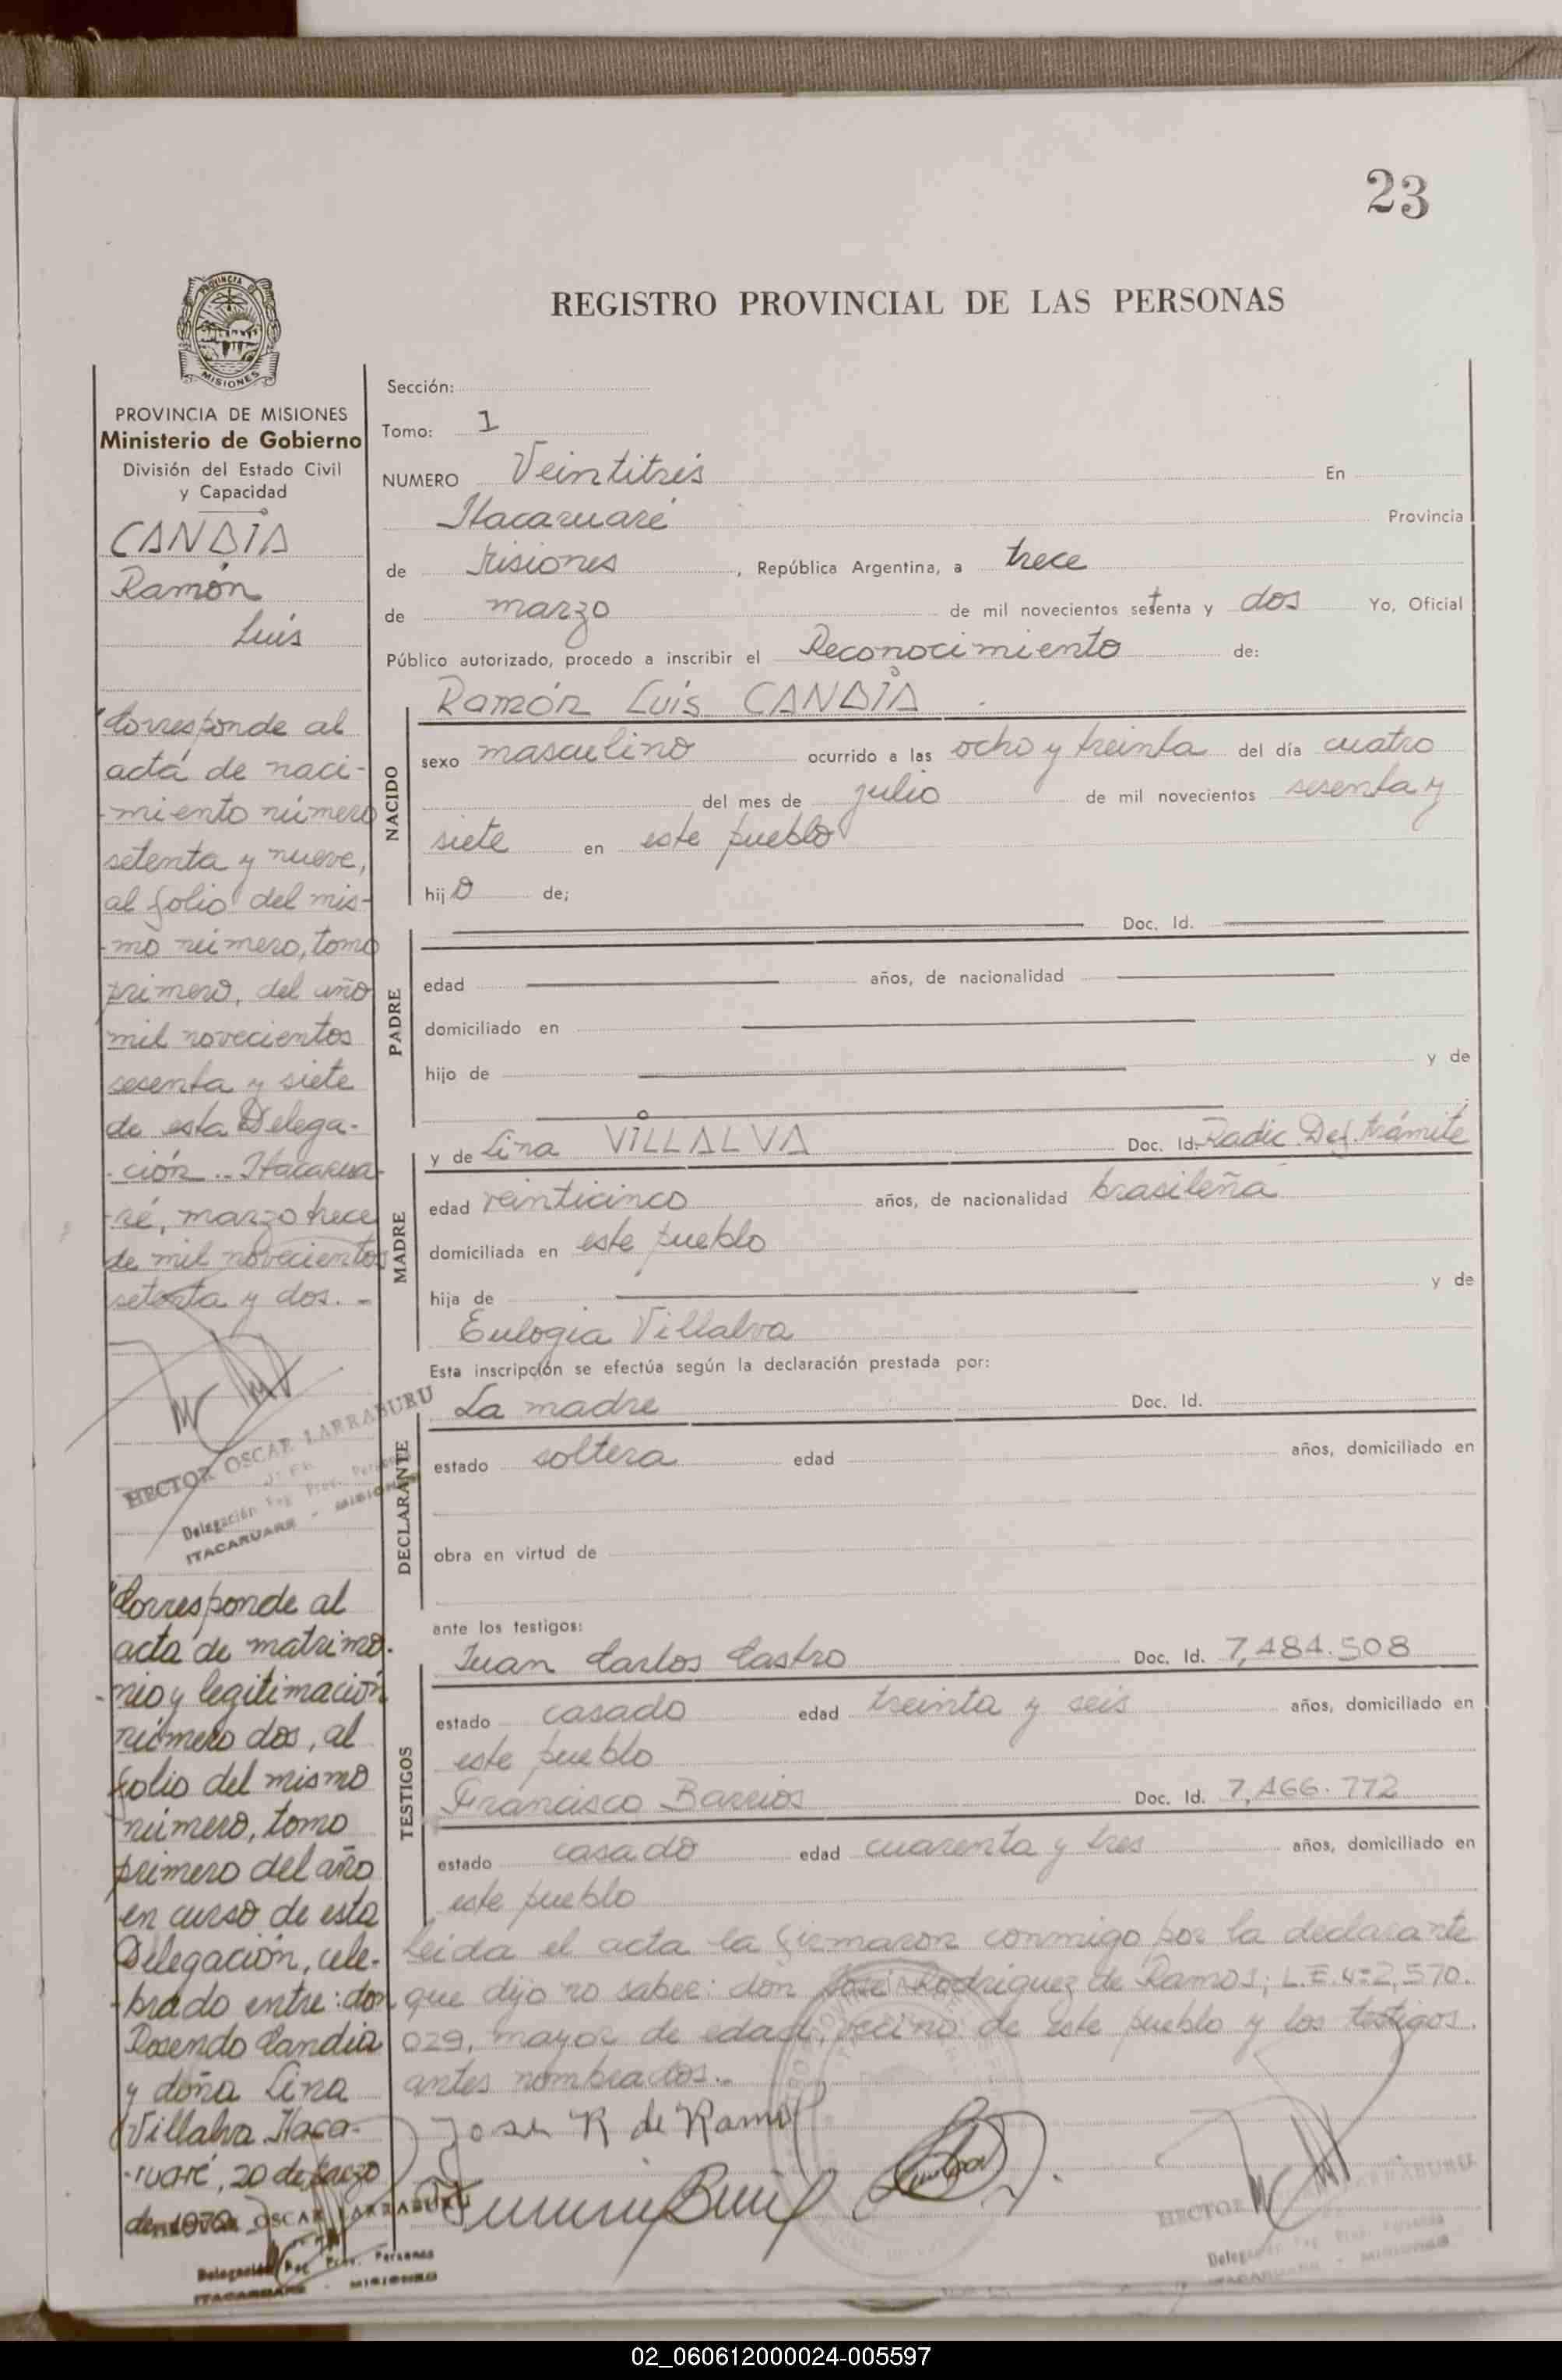 23
PROVINCIA DE
MISIONES
REGISTRO PROVINCIAL DE LAS PERSONAS
PROVINCIA DE MISIONES
Ministerio de Gobierno
División del Estado Civil
y Capacidad
CANDIA
Ramón
Luis
Corresponde al
acta de naci-
-miento número
setenta y nueve,
al folio del mis-
-mo número, tomo
primero, del año
mil novecientos
sesenta y siete
de esta Delega-
-ción.- Itacarua-
-ré, marzo trece
de mil novecientos
setenta y dos.-
HECTOR OSCAR LARRABURU
Delegación Reg. Prov. Personas
ITACARUARE - MISIONES
Corresponde al
acta de matrimo-
-nio y legitimación
número dos, al
folio del mismo
número, tomo
primero del año
en curso de esta
Delegación, cele-
-brado entre: don
Rosendo Candia
y doña Lina
Villalva. Itaca-
-ruaré, 20 de marzo
de 1972
OSCAR LARRABURU
Delegación Reg. Prov. Personas
ITACARUARE - MISIONES
Sección:
Tomo: 1
NUMERO Veintitrés En
Itacaruaré Provincia
de Misiones, República Argentina, a trece
de marzo de mil novecientos setenta y dos Yo, Oficial
Público autorizado, procedo a inscribir el Reconocimiento de:
Ramón Luis CANDIA.
NACIDO
sexo masculino ocurrido a las ocho y treinta del día cuatro
del mes de julio de mil novecientos sesenta y
siete en este pueblo
hijo de;
PADRE
Doc. Id.
edad años, de nacionalidad
domiciliado en
hijo de y de
MADRE
y de Lina VILLALVA Doc. Id. Radic. Def. trámite
edad veinticinco años, de nacionalidad brasileña
domiciliada en este pueblo
hija de y de
Eulogia Villalva
Esta inscripción se efectúa según la declaración prestada por:
DECLARANTE
La madre Doc. Id.
estado soltera edad años, domiciliado en
obra en virtud de
ante los testigos:
TESTIGOS
Juan Carlos Castro Doc. Id. 7,484.508
estado casado edad treinta y seis años, domiciliado en
este pueblo
Francisco Barrios Doc. Id. 7,466.772
estado casado edad cuarenta y tres años, domiciliado en
este pueblo
Leida el acta la firmaron conmigo por la declarante
que dijo no saber: don José Rodriguez de Ramos, L.E. Nº 2,570.
029, mayor de edad, vecino de este pueblo y los testigos
antes nombrados.-
Jose R de Ramos
HECTOR LARRABURU
02_060612000024-005597